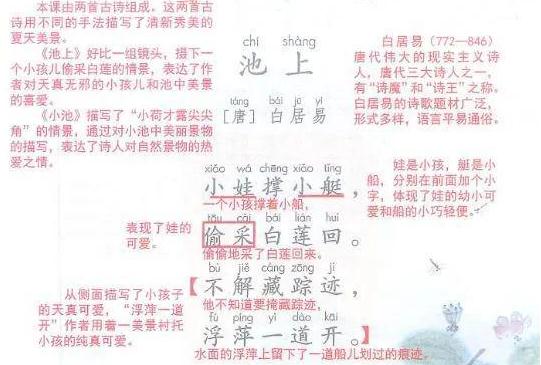 本课由两首古诗组成。这两首古
诗用不同的手法描写了清新秀美的
夏天美景。
《池上》好比一组镜头，摄下一
个小孩儿偷采白莲的情景，表达了作
者对天真无邪的小孩儿和池中美景
的喜爱。
《小池》描写了“小荷才露尖尖
角”的情景，通过对小池中美丽景物
的描写，表达了诗人对自然景物的热
爱之情。
chí shàng
池上
táng bái jū yì
[唐] 白居易
白居易（772—846）
唐代伟大的现实主义诗
人，唐代三大诗人之一，
有“诗魔”和“诗王”之称。
白居易的诗歌题材广泛，
形式多样，语言平易通俗。
xiǎo wá chēng xiǎo tǐng
小娃撑小艇，
一个小孩撑着小船，
娃是小孩，艇是小
船，分别在前面加个小
字，体现了娃的幼小可
爱和船的小巧轻便。
tōu cǎi bái lián huí
偷采白莲回。
偷偷地采了白莲回来。
表现了娃的
可爱。
bù jiě cáng zōng jì
【不解藏踪迹，
他不知道要掩藏踪迹，
fú píng yí dào kāi
浮萍一道开。】
水面的浮萍上留下了一道船儿划过的痕迹。
从侧面描写了小孩子
的天真可爱，“浮萍一道
开”作者用着一美景衬托
小孩的纯真可爱。